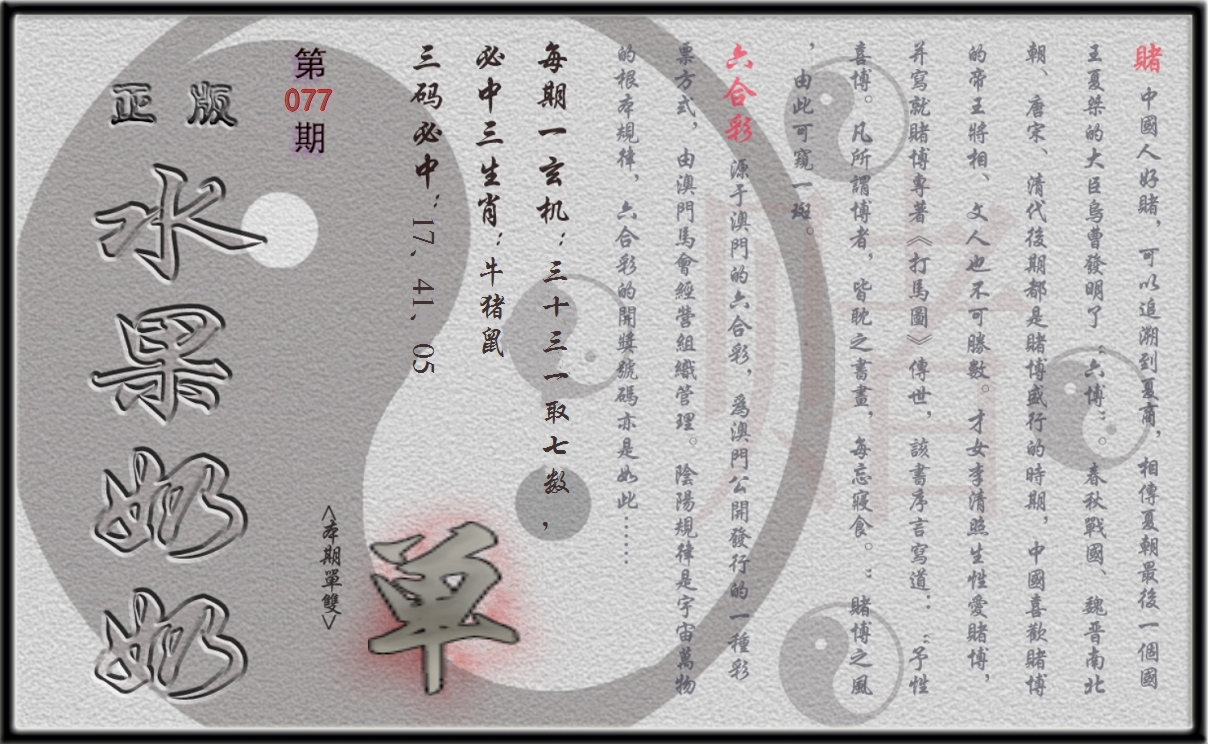 賭 中國人好賭，可以追溯到夏商，相傳夏朝最後一個國
王夏桀的大臣烏曹發明了“六博”。春秋戰國、魏晉南北
朝、唐宋、清代後期都是賭博盛行的時期，中國喜歡賭博
的帝王將相、文人也不可勝數。才女李清照生性愛賭博，
并寫就賭博專著《打馬圖》傳世，該書序言寫道：“予性
喜博。凡所謂博者，皆耽之書晝，每忘寢食。：賭博之風
，由此可窺一斑。
六合彩 源于澳門的六合彩，爲澳門公開發行的一種彩
票方式，由澳門馬會經營組織管理。陰陽規律是宇宙萬物
的根本規律，六合彩的開獎號碼亦是如此……
每期一玄机：三十三一取七数，
必中三生肖：牛猪鼠
三码必中：17、41、05
第
077
期
<本期單雙>
单
正版
水果奶奶
赌